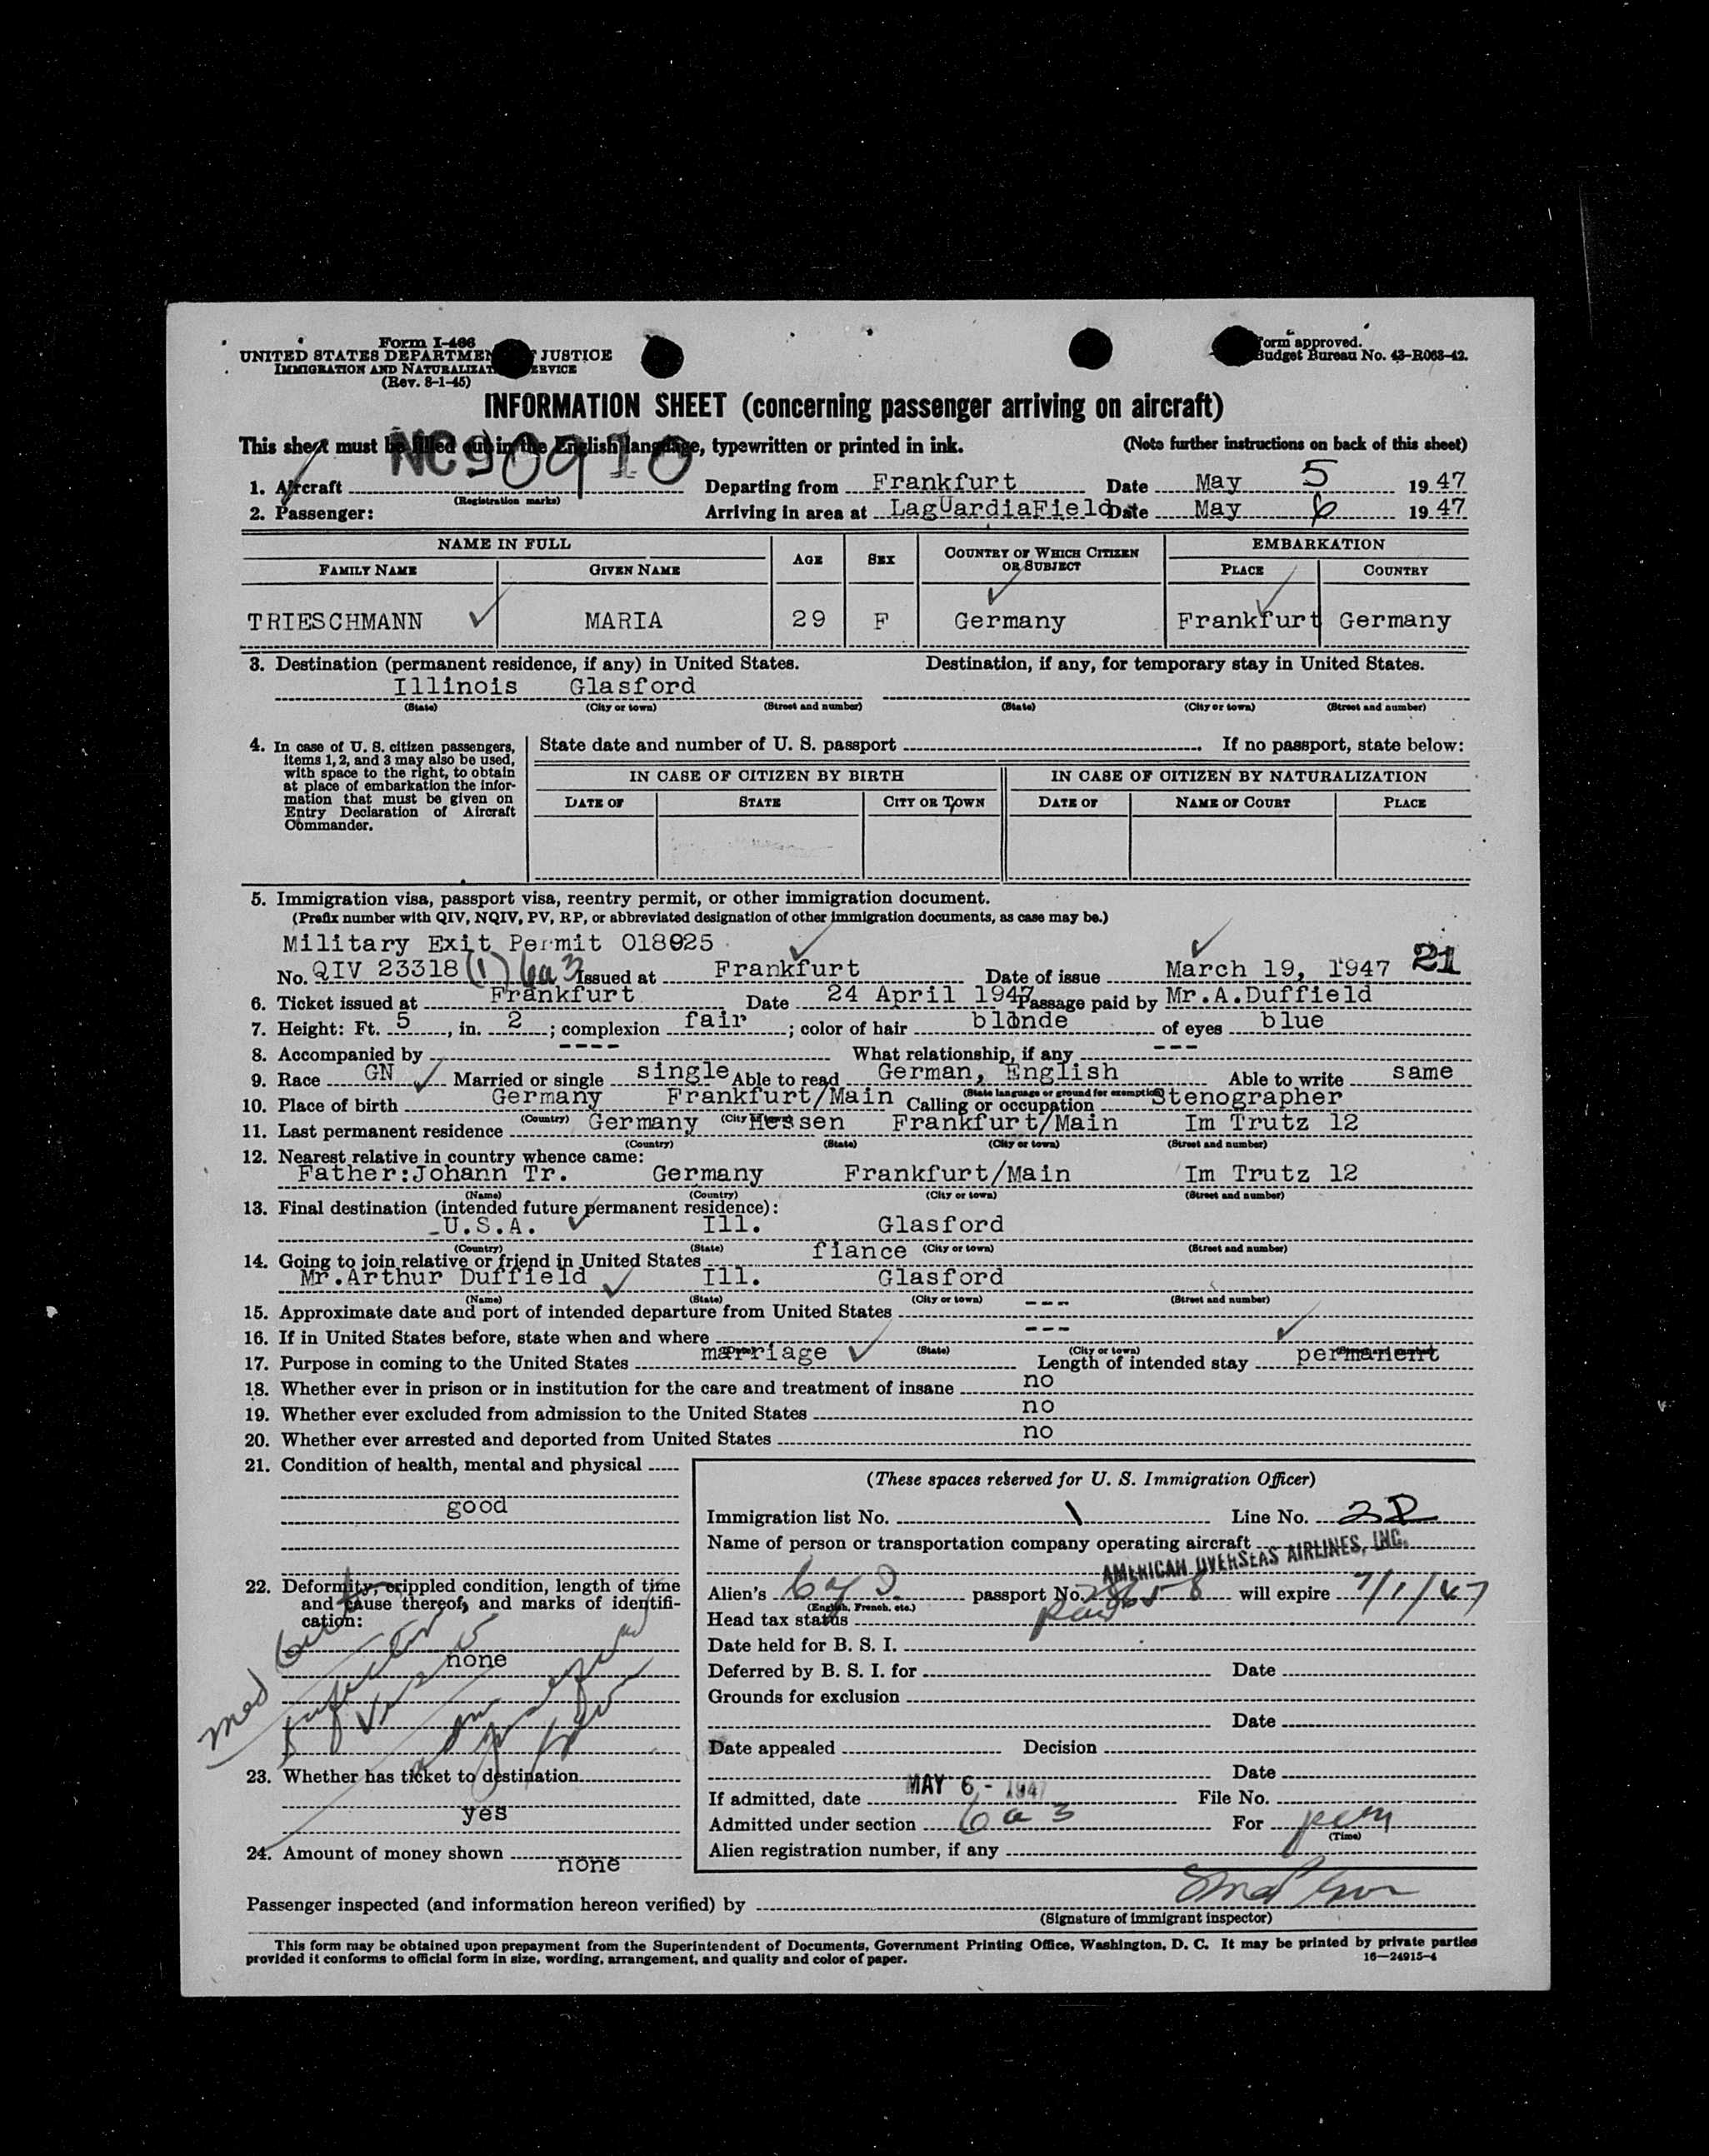 Form I-466
UNITED STATES DEPARTMENT OF JUSTICE
IMMIGRATION AND NATURALIZATION SERVICE
(Rev. 8-1-45)
Form approved.
Budget Bureau No. 43-R063-42.
INFORMATION SHEET (concerning passenger arriving on aircraft)
This sheet must be filled out in the English language, typewritten or printed in ink. (Note further instructions on back of this sheet)
NC90910
1. Aircraft (Registration marks) Departing from Frankfurt Date May 5 1947
2. Passenger: Arriving in area at LagUardiaField Date May 6 1947
NAME IN FULL AGE SEX COUNTRY OF WHICH CITIZEN OR SUBJECT EMBARKATION
FAMILY NAME GIVEN NAME PLACE COUNTRY
TRIESCHMANN MARIA 29 F Germany Frankfurt Germany
3. Destination (permanent residence, if any) in United States. Destination, if any, for temporary stay in United States.
Illinois Glasford
(State) (City or town) (Street and number) (State) (City or town) (Street and number)
4. In case of U. S. citizen passengers, items 1, 2, and 3 may also be used, with space to the right, to obtain at place of embarkation the information that must be given on Entry Declaration of Aircraft Commander.
State date and number of U. S. passport If no passport, state below:
IN CASE OF CITIZEN BY BIRTH IN CASE OF CITIZEN BY NATURALIZATION
DATE OF STATE CITY OR TOWN DATE OF NAME OF COURT PLACE
5. Immigration visa, passport visa, reentry permit, or other immigration document.
(Prefix number with QIV, NQIV, PV, RP, or abbreviated designation of other immigration documents, as case may be.)
Military Exit Permit 018025
No. QIV 23318 (1) 6a3 Issued at Frankfurt Date of issue March 19, 1947 21
6. Ticket issued at Frankfurt Date 24 April 1947 Passage paid by Mr.A.Duffield
7. Height: Ft. 5, in. 2; complexion fair; color of hair blonde of eyes blue
8. Accompanied by ---- What relationship, if any ---
9. Race GN Married or single single Able to read German, English Able to write same
(State language or ground for exemption)
10. Place of birth Germany Frankfurt/Main Calling or occupation Stenographer
(Country) (City or town)
11. Last permanent residence Germany Hessen Frankfurt/Main Im Trutz 12
(Country) (State) (City or town) (Street and number)
12. Nearest relative in country whence came:
Father:Johann Tr. Germany Frankfurt/Main Im Trutz 12
(Name) (Country) (City or town) (Street and number)
13. Final destination (intended future permanent residence):
U.S.A. Ill. Glasford
(Country) (State) (City or town) (Street and number)
14. Going to join relative or friend in United States fiance
Mr.Arthur Duffield Ill. Glasford
(Name) (State) (City or town) (Street and number)
15. Approximate date and port of intended departure from United States ---
16. If in United States before, state when and where ---
(State) (City or town) (Street and number)
17. Purpose in coming to the United States marriage Length of intended stay permanent
18. Whether ever in prison or in institution for the care and treatment of insane no
19. Whether ever excluded from admission to the United States no
20. Whether ever arrested and deported from United States no
21. Condition of health, mental and physical
good
22. Deformity, crippled condition, length of time and cause thereof, and marks of identification:
none
med
23. Whether has ticket to destination
yes
24. Amount of money shown none
(These spaces reserved for U. S. Immigration Officer)
Immigration list No. 1 Line No.
Name of person or transportation company operating aircraft
AMERICAN OVERSEAS AIRLINES, INC.
Alien's passport No. will expire 7/1/47
(English, French, etc.)
Head tax status Paid
Date held for B. S. I.
Deferred by B. S. I. for Date
Grounds for exclusion
Date
Date appealed Decision
Date
If admitted, date MAY 6 - 1947 File No.
Admitted under section 6a3 For perm
(Time)
Alien registration number, if any
Passenger inspected (and information hereon verified) by
(Signature of immigrant inspector)
This form may be obtained upon prepayment from the Superintendent of Documents, Government Printing Office, Washington, D. C. It may be printed by private parties
provided it conforms to official form in size, wording, arrangement, and quality and color of paper. 16—24915-4